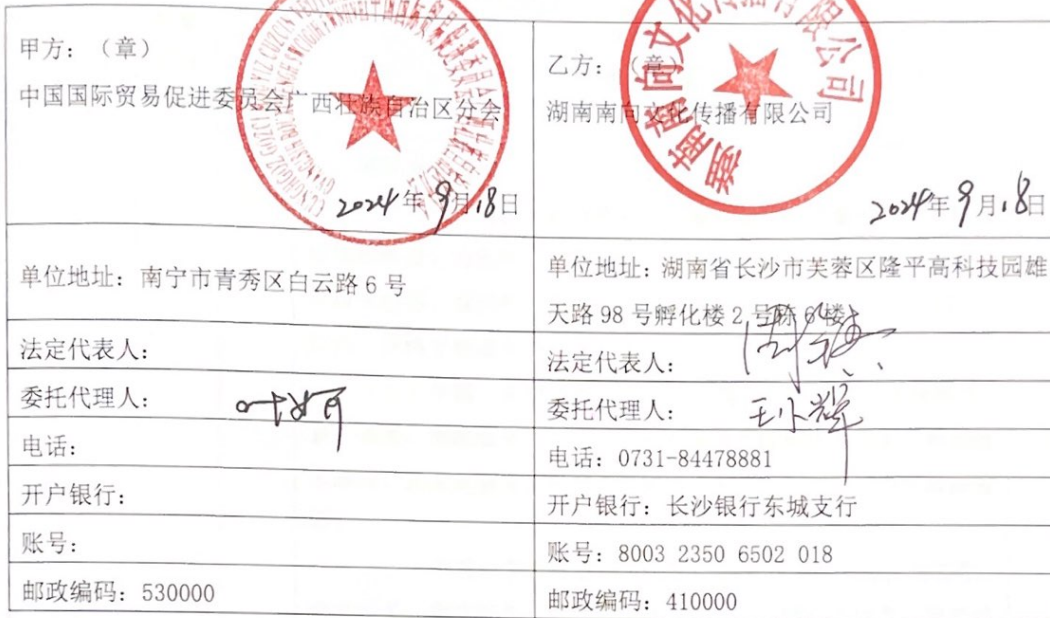 甲方：（章）
中国国际贸易促进委员会广西壮族自治区分会
2024年9月18日
乙方：（章）
湖南南向文化传播有限公司
2024年9月18日
湖南南向文化传播有限公司
单位地址：南宁市青秀区白云路6号
单位地址：湖南省长沙市芙蓉区隆平高科技园雄
天路98号孵化楼2号栋6楼
法定代表人：
法定代表人：
委托代理人：
委托代理人：王小辉
电话：
电话：0731-84478881
开户银行：
开户银行：长沙银行东城支行
账号：
账号：8003 2350 6502 018
邮政编码：530000
邮政编码：410000